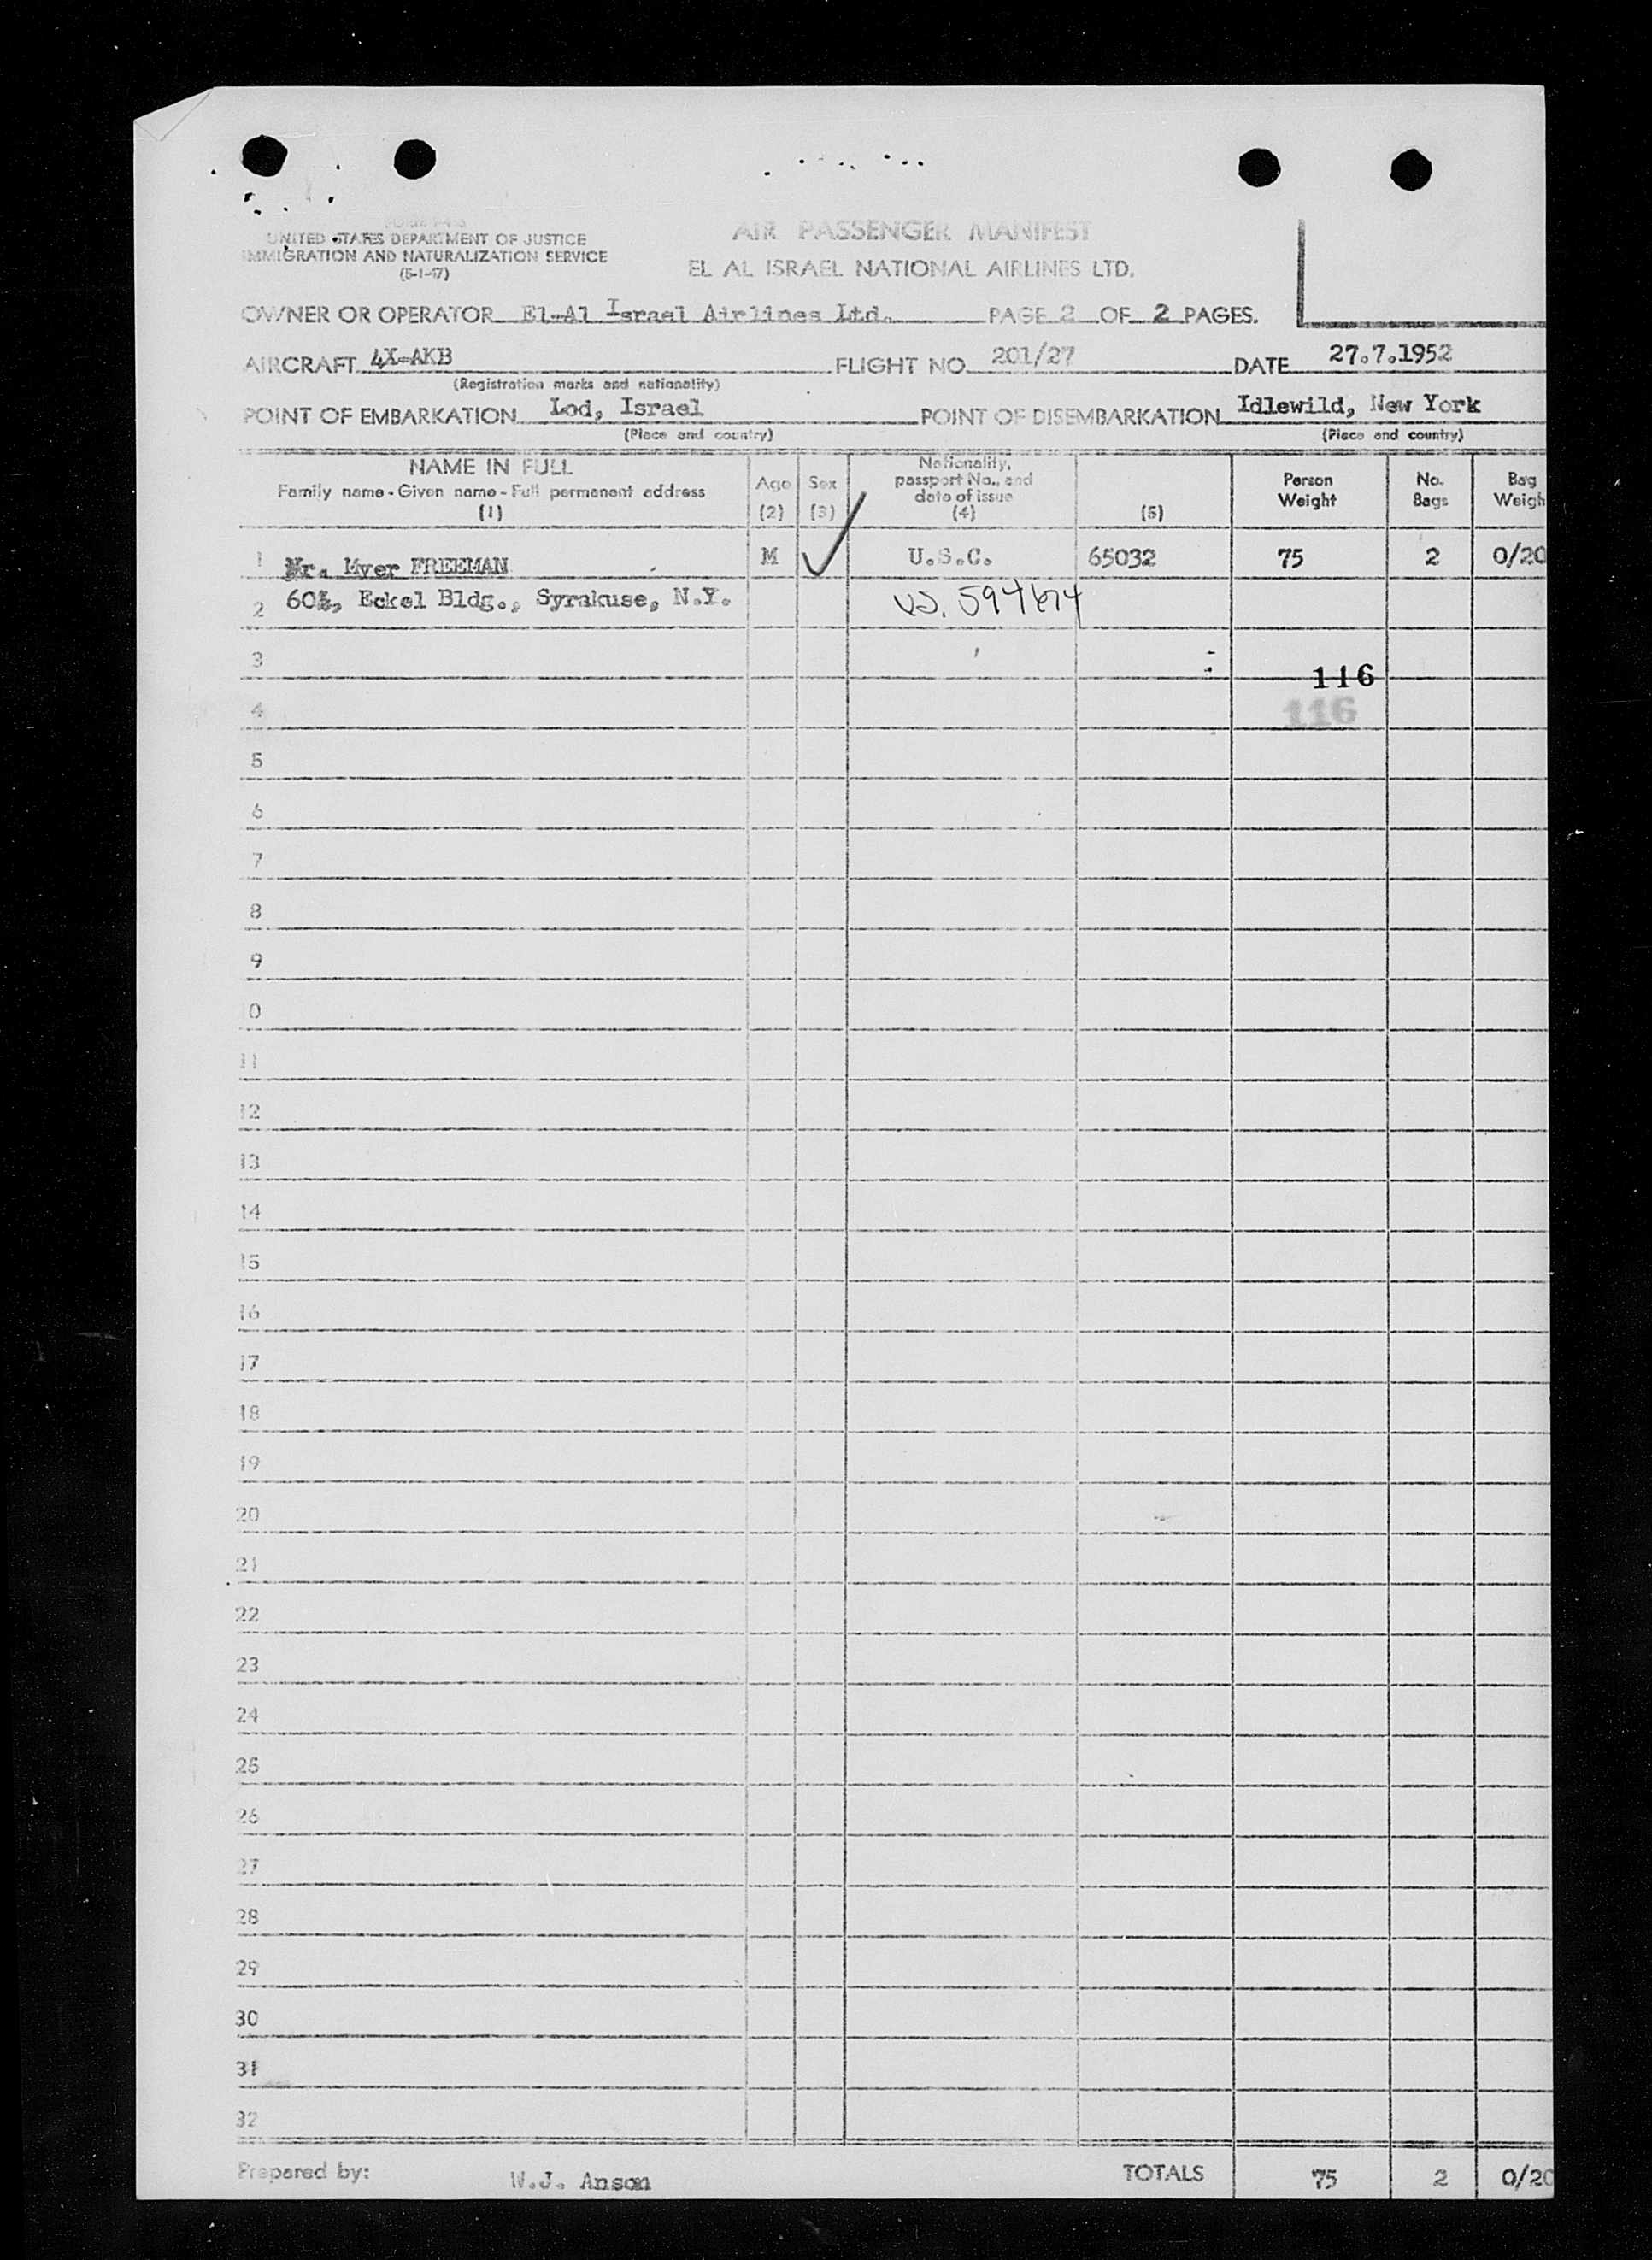 UNITED STATES DEPARTMENT OF JUSTICE
IMMIGRATION AND NATURALIZATION SERVICE
(5-1-47)
AIR PASSENGER MANIFEST
EL AL ISRAEL NATIONAL AIRLINES LTD.
OWNER OR OPERATOR El-Al Israel Airlines Ltd. PAGE 2 OF 2 PAGES.
AIRCRAFT 4X-AKB FLIGHT NO. 201/27 DATE 27.7.1952
(Registration marks and nationality)
POINT OF EMBARKATION Lod, Israel POINT OF DISEMBARKATION Idlewild, New York
(Place and country) (Place and country)
NAME IN FULL
Family name - Given name - Full permanent address
(1)
Age
(2)
Sex
(3)
Nationality,
passport No., and
date of issue
(4)
(5)
Person
Weight
No.
Bags
Bag
Weigh
1 Mr. Myer FREEMAN M U.S.C. 65032 75 2 0/20
2 Eckel Bldg., Syrakuse, N.Y.
3
116
4
116
5
6
7
8
9
0
11
12
13
14
15
16
17
18
19
20
21
22
23
24
25
26
27
28
29
30
31
32
Prepared by: W.J. Anson TOTALS 75 2 0/20